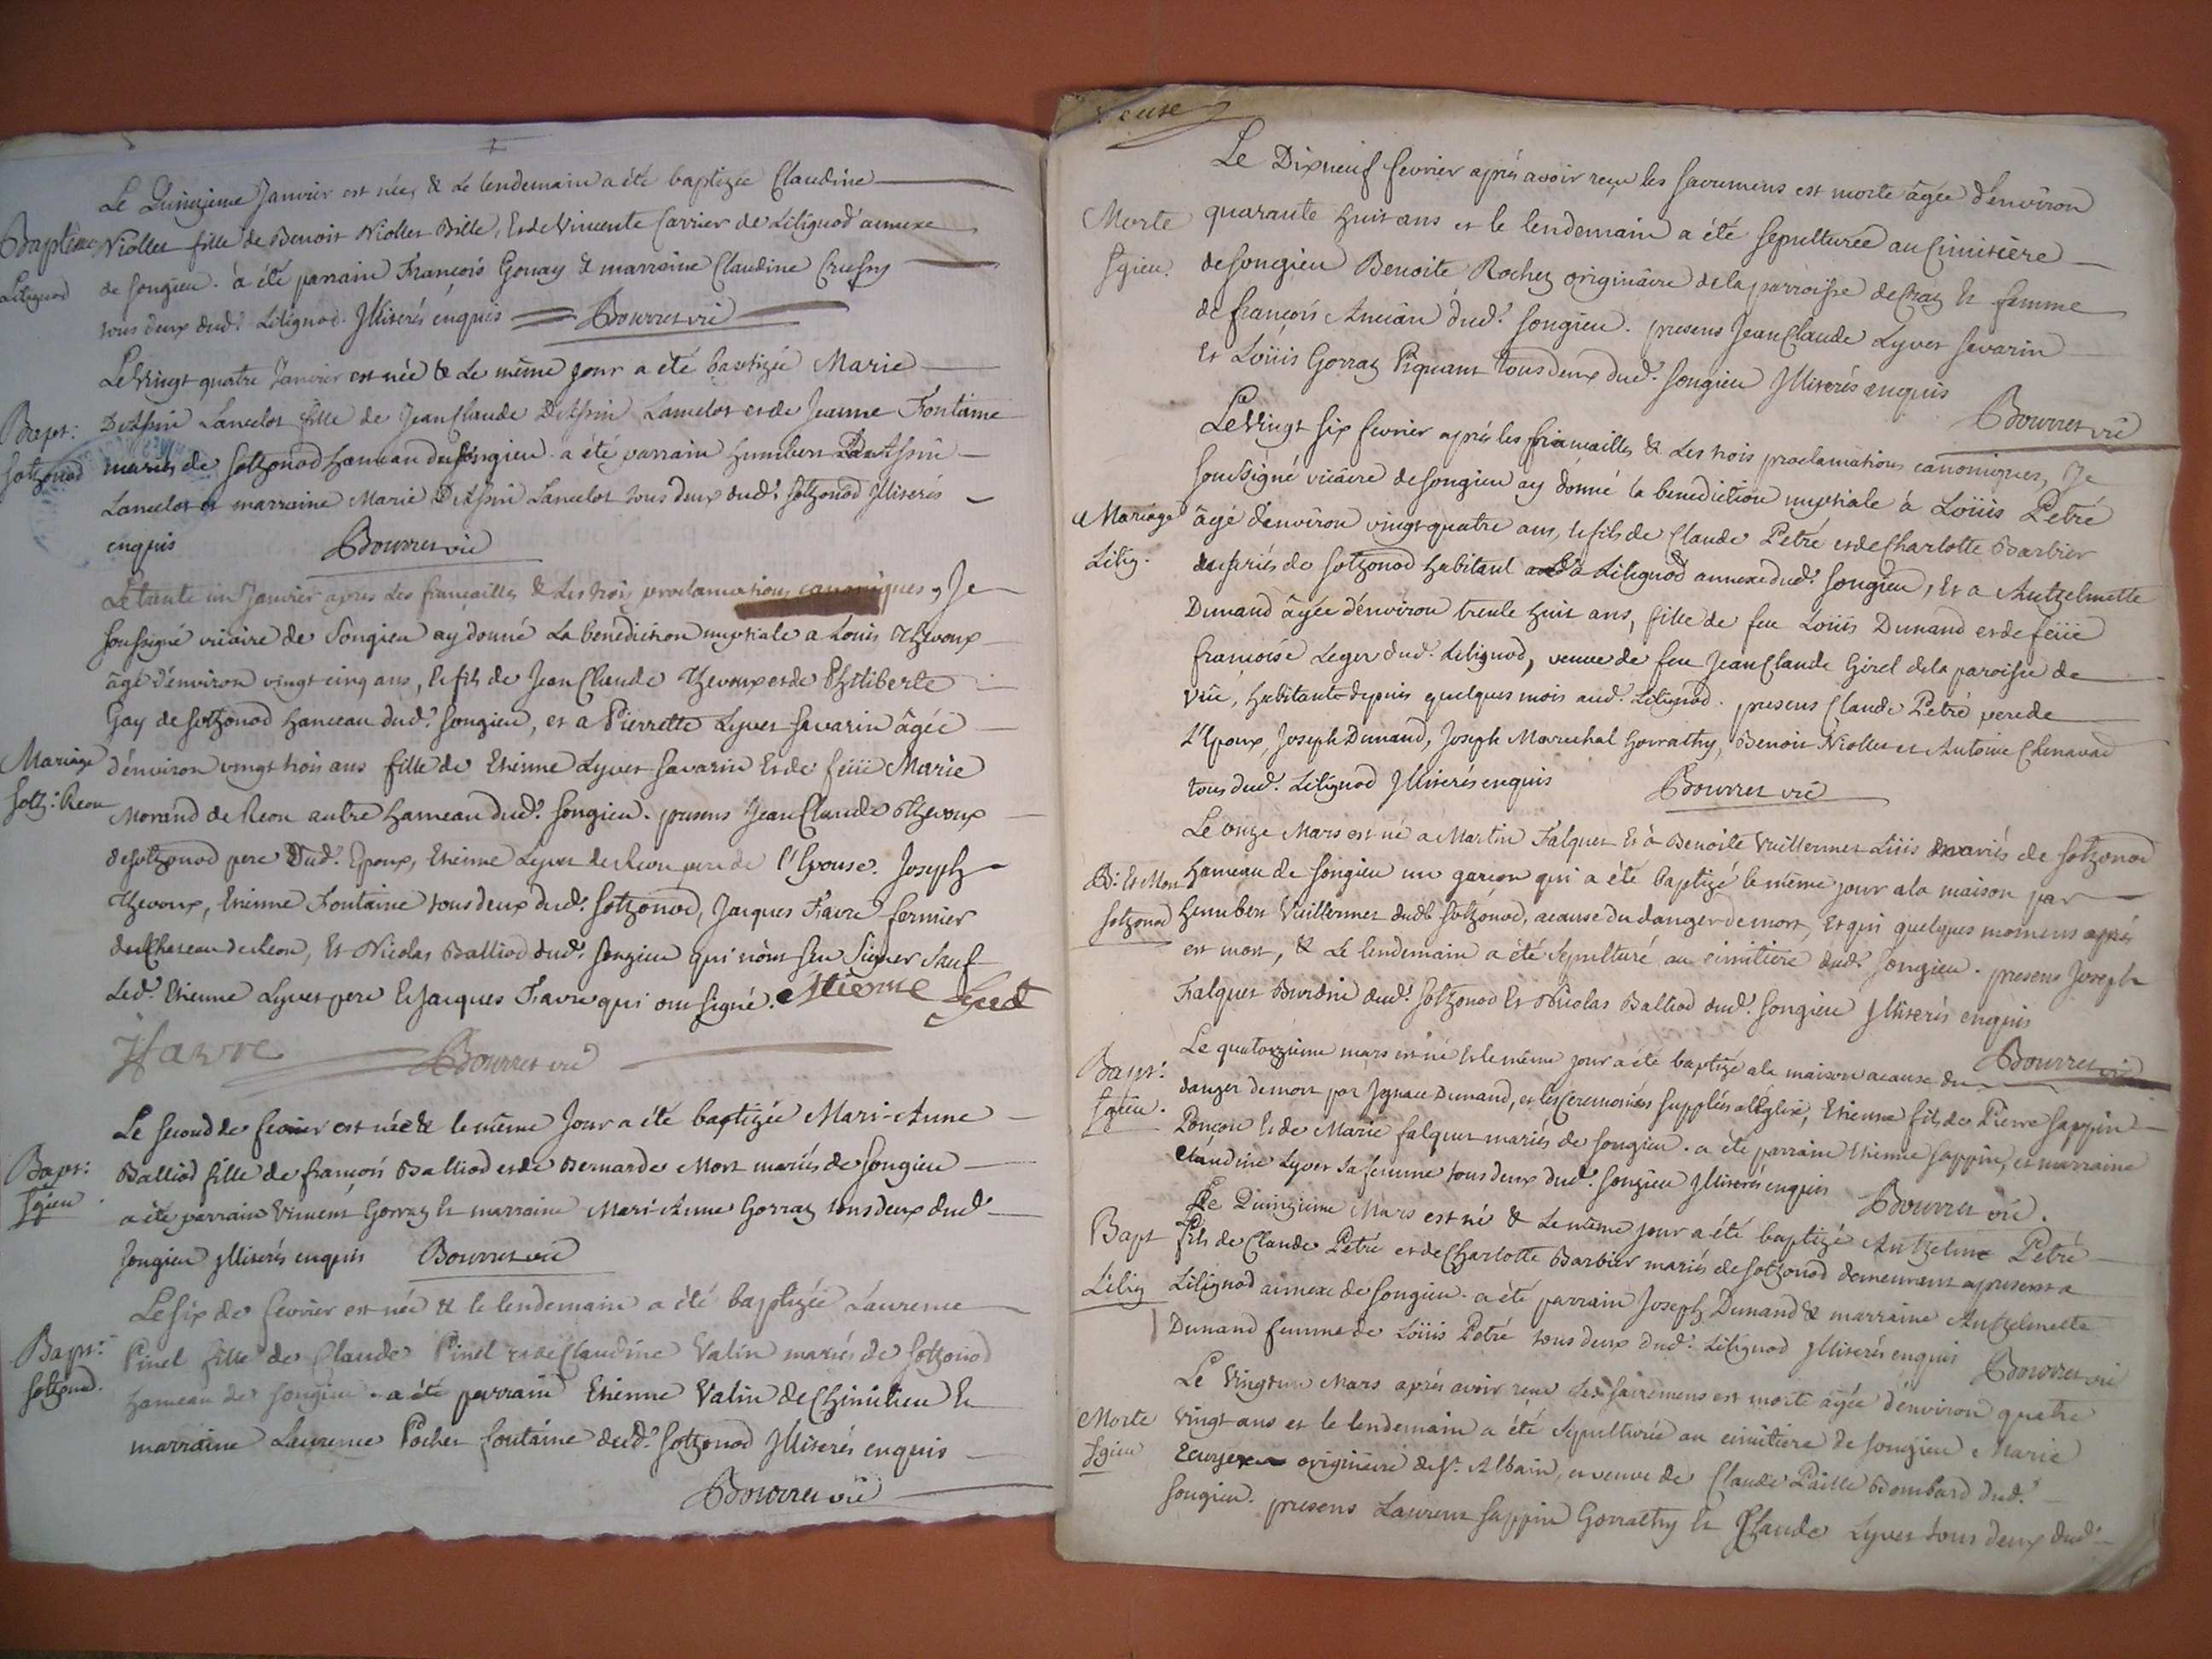 Le Quinzieme Janvier est née, & Le lendemain a été baptizée Claudine
Baptême Niollet fille de Benoit Niollet Bille, Et de Vincente Carrier de Lilignod annexe
Lilignod de Songieu. à été parrain François Gonay & marraine Claudine
tous deux dud.t Lilignod. Illiterés enquis Bourret vic
Le Vingt quatre Janvier est née & Le même jour a été baptizée Marie
Bapt: Lancelot fille de Jean Claude Lancelot et de Jeanne Fontaine
Sotzonod mariés de Sotzonod hameau de Songieu. a été parrain Humbert
Lancelot et marraine Marie Lancelot tous deux dud.t Sotzonod Illiterés
enquis Bourret vic
Le trente un Janvier apres Les fiançailles & Les trois proclamations canoniques, Je
soussigné vicaire de Songieu ay donné La benediction nuptiale a Louis Thevoux
âgé d'environ vingt cinq ans, le fils de Jean Claude Thevoux et de Philiberte
Gay de Sotzonod hameau dud.t Songieu, et a Pierrette Lyvet Savarin âgée
Mariage d'environ vingt trois ans fille de Etienne Lyvet Savarin Et de feüe Marie
Sotz: Reon Morand de Reon autre hameau dud.t Songieu. presens Jean Claude Thevoux
de Sotzonod pere Dud.t Epoux, Etienne Lyvet de Reon pere de l'Epouse. Joseph
Thevoux, Etienne Fontaine tous deux dud.t Sotzonod, Jacques Favre fermier
du Chateau de Reon, Et Nicolas Balliod dud.t Songieu qui n'ont sçu Signer Sauf
Led.t Etienne Lyvet pere Et Jacques Favre qui ont signé. Etienne
J favre Bourret vic
Le second de fevrier est née & le même Jour a été baptizée Mari-Anne
Bapt: Balliod fille de françois Balliod et de Bernarde Mort mariés de Songieu
Sgieu. a été parrain Vincent Gorraz Et marraine Mari-Anne Gorraz tous deux dud.t
Songieu Illiterés enquis Bourret vic
Le six de fevrier est née & le lendemain a été baptizée Laurence
Bapt: Pinel fille de Claude Pinel et de Claudine Valin mariés de Sotzonod
Sotzonod. hameau de Songieu. a été parrain Etienne Valin de Chimilieu Et
marraine Laurence Pochet fontaine dud.t Sotzonod Illiterés enquis
Bourret vic
Le Dixneuf fevrier après avoir reçu les sacremens est morte âgée d'environ
Morte quarante huit ans et le lendemain a été sepulturée au Cimitière
Sgieu. de Songieu Benoite Rochez originaire de la parroisse de Et femme
de françois Ancian dud.t Songieu. presens Jean Claude Lyvet Savarin
Et Loüis Gorraz Piquant tous deux dud.t Songieu Illiterés enquis
Bourret vic
Le Vingt six fevrier après les fiancailles & Les trois proclamations canoniques, Je
soussigné vicaire de Songieu ay donné la benediction nuptiale à Loüis Petré
Mariage âgé d'environ vingt quatre ans, le fils de Claude Petré et de Charlotte Barbier
Lilig. mariés de Sotzonod habitant a Lilignod annexe dud.t Songieu, Et a Antzelmette
Dunand âgée d'environ trente huit ans, fille de feu Loüis Dunand et de feüe
françoise Leger dud.t Lilignod, veuve de feu Jean Claude Girel de la paroisse de
Vüe, habitante depuis quelques mois aud.t Lilignod. presens Claude Petré pere de
L'Epoux, Joseph Dunand, Joseph Marechal Gorrathy, Benoit Niollet et Antoine Chenavad
tous dud.t Lilignod Illiterés enquis Bourret vic
Le onze Mars est né a Martin Falquet Et à Benoite Vuillermet mariés de Sotzonod
B: Et Mort hameau de Songieu un garçon qui a été baptizé le même jour a la maison par
Sotzonod humbert Vuillermet dud.t Sotzonod, acause du danger de mort, Et qui quelques momens après
est mort, & Le lendemain a été sepulturé au cimitiere dud.t Songieu. presens Joseph
Falquet Burdin dud.t Sotzonod Et Nicolas Balliod dud.t Songieu Illiterés enquis
Bourret vic
Le quatorzieme mars est né Et le même jour a été baptizé a la maison acause du
Bapt: danger de mort par Ignace Dunand, et les Ceremonies supplées a l'Eglise, Etienne fils de Pierre Sappin
Sgieu. Ponçon Et de Marie falquet mariés de Songieu. a été parrain Etienne Sappin, et marraine
Claudine Lyvet sa femme tous deux dud.t Songieu Illiterés enquis Bourret vic.
Le Quinzieme Mars est né & Le même jour a été baptizé Antzelme Petré
Bapt fils de Claude Petré et de Charlotte Barbier mariés de Sotzonod demeurant apresent a
Lilig Lilignod annexe de Songieu. a été parrain Joseph Dunand & marraine Antzelmette
Dunand femme de Loüis Petré tous deux dud.t Lilignod Illiterés enquis Bourret vic
Le Vingt un Mars après avoir reçu Les sacremens est morte âgée d'environ quatre
Morte Vingt ans et le lendemain a été sepulturée au cimitiere de Songieu Marie
Sgieu originaire de S.t Albain, et veuve de Claude Paille Bombard dud.t
Songieu. presens Laurent Sappin Gorrathy Et Claude Lyvet tous deux dud.t